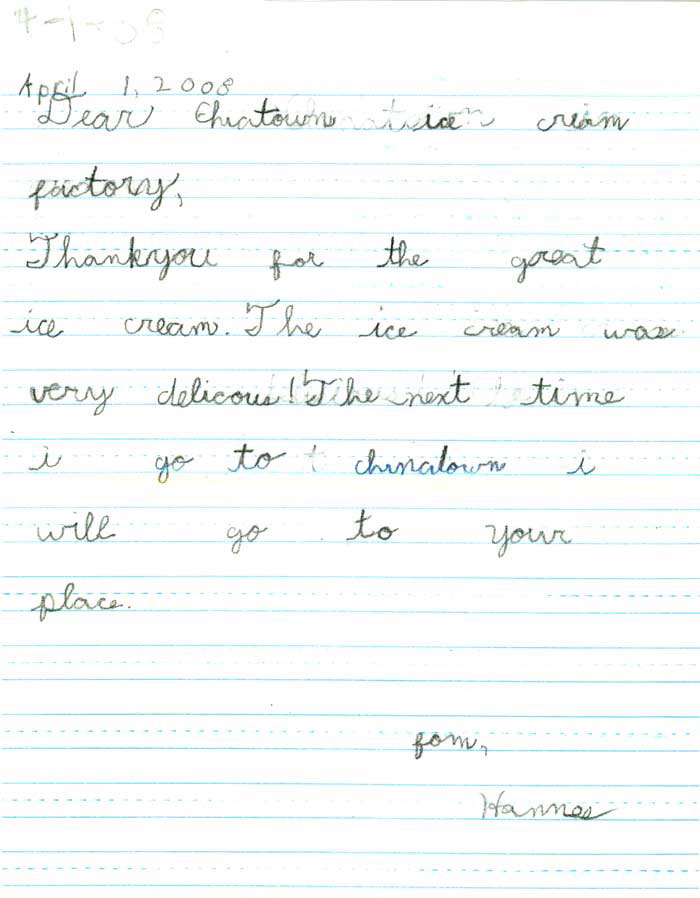 4-1-08
April 1, 2008
Dear Chiatown ice cream
factory,
Thankyou for the great
ice cream. The ice cream was
very delicous! The next time
i go to chinatown i
will go to your
place.
fom,
Hannes